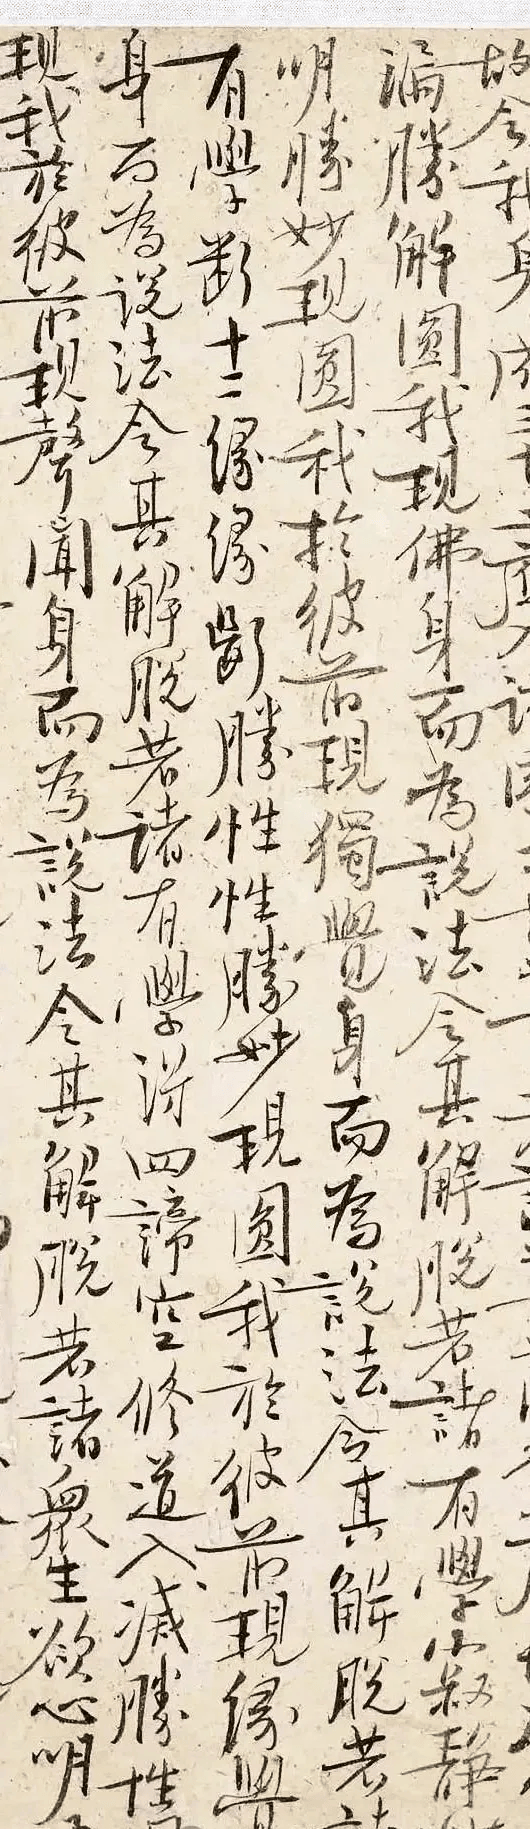 故令我身成三十二應入諸國土
漏勝解圓我現佛身而為說法令其解脫若諸有學寂靜
明勝妙現圓我於彼前現獨覺身而為說法令其解脫若諸
有學斷十二緣緣斷勝性性勝妙現圓我於彼前現緣覺
身而為說法令其解脫若諸有學得四諦空修道入滅勝性
現我於彼前現聲聞身而為說法令其解脫若諸眾生欲心明